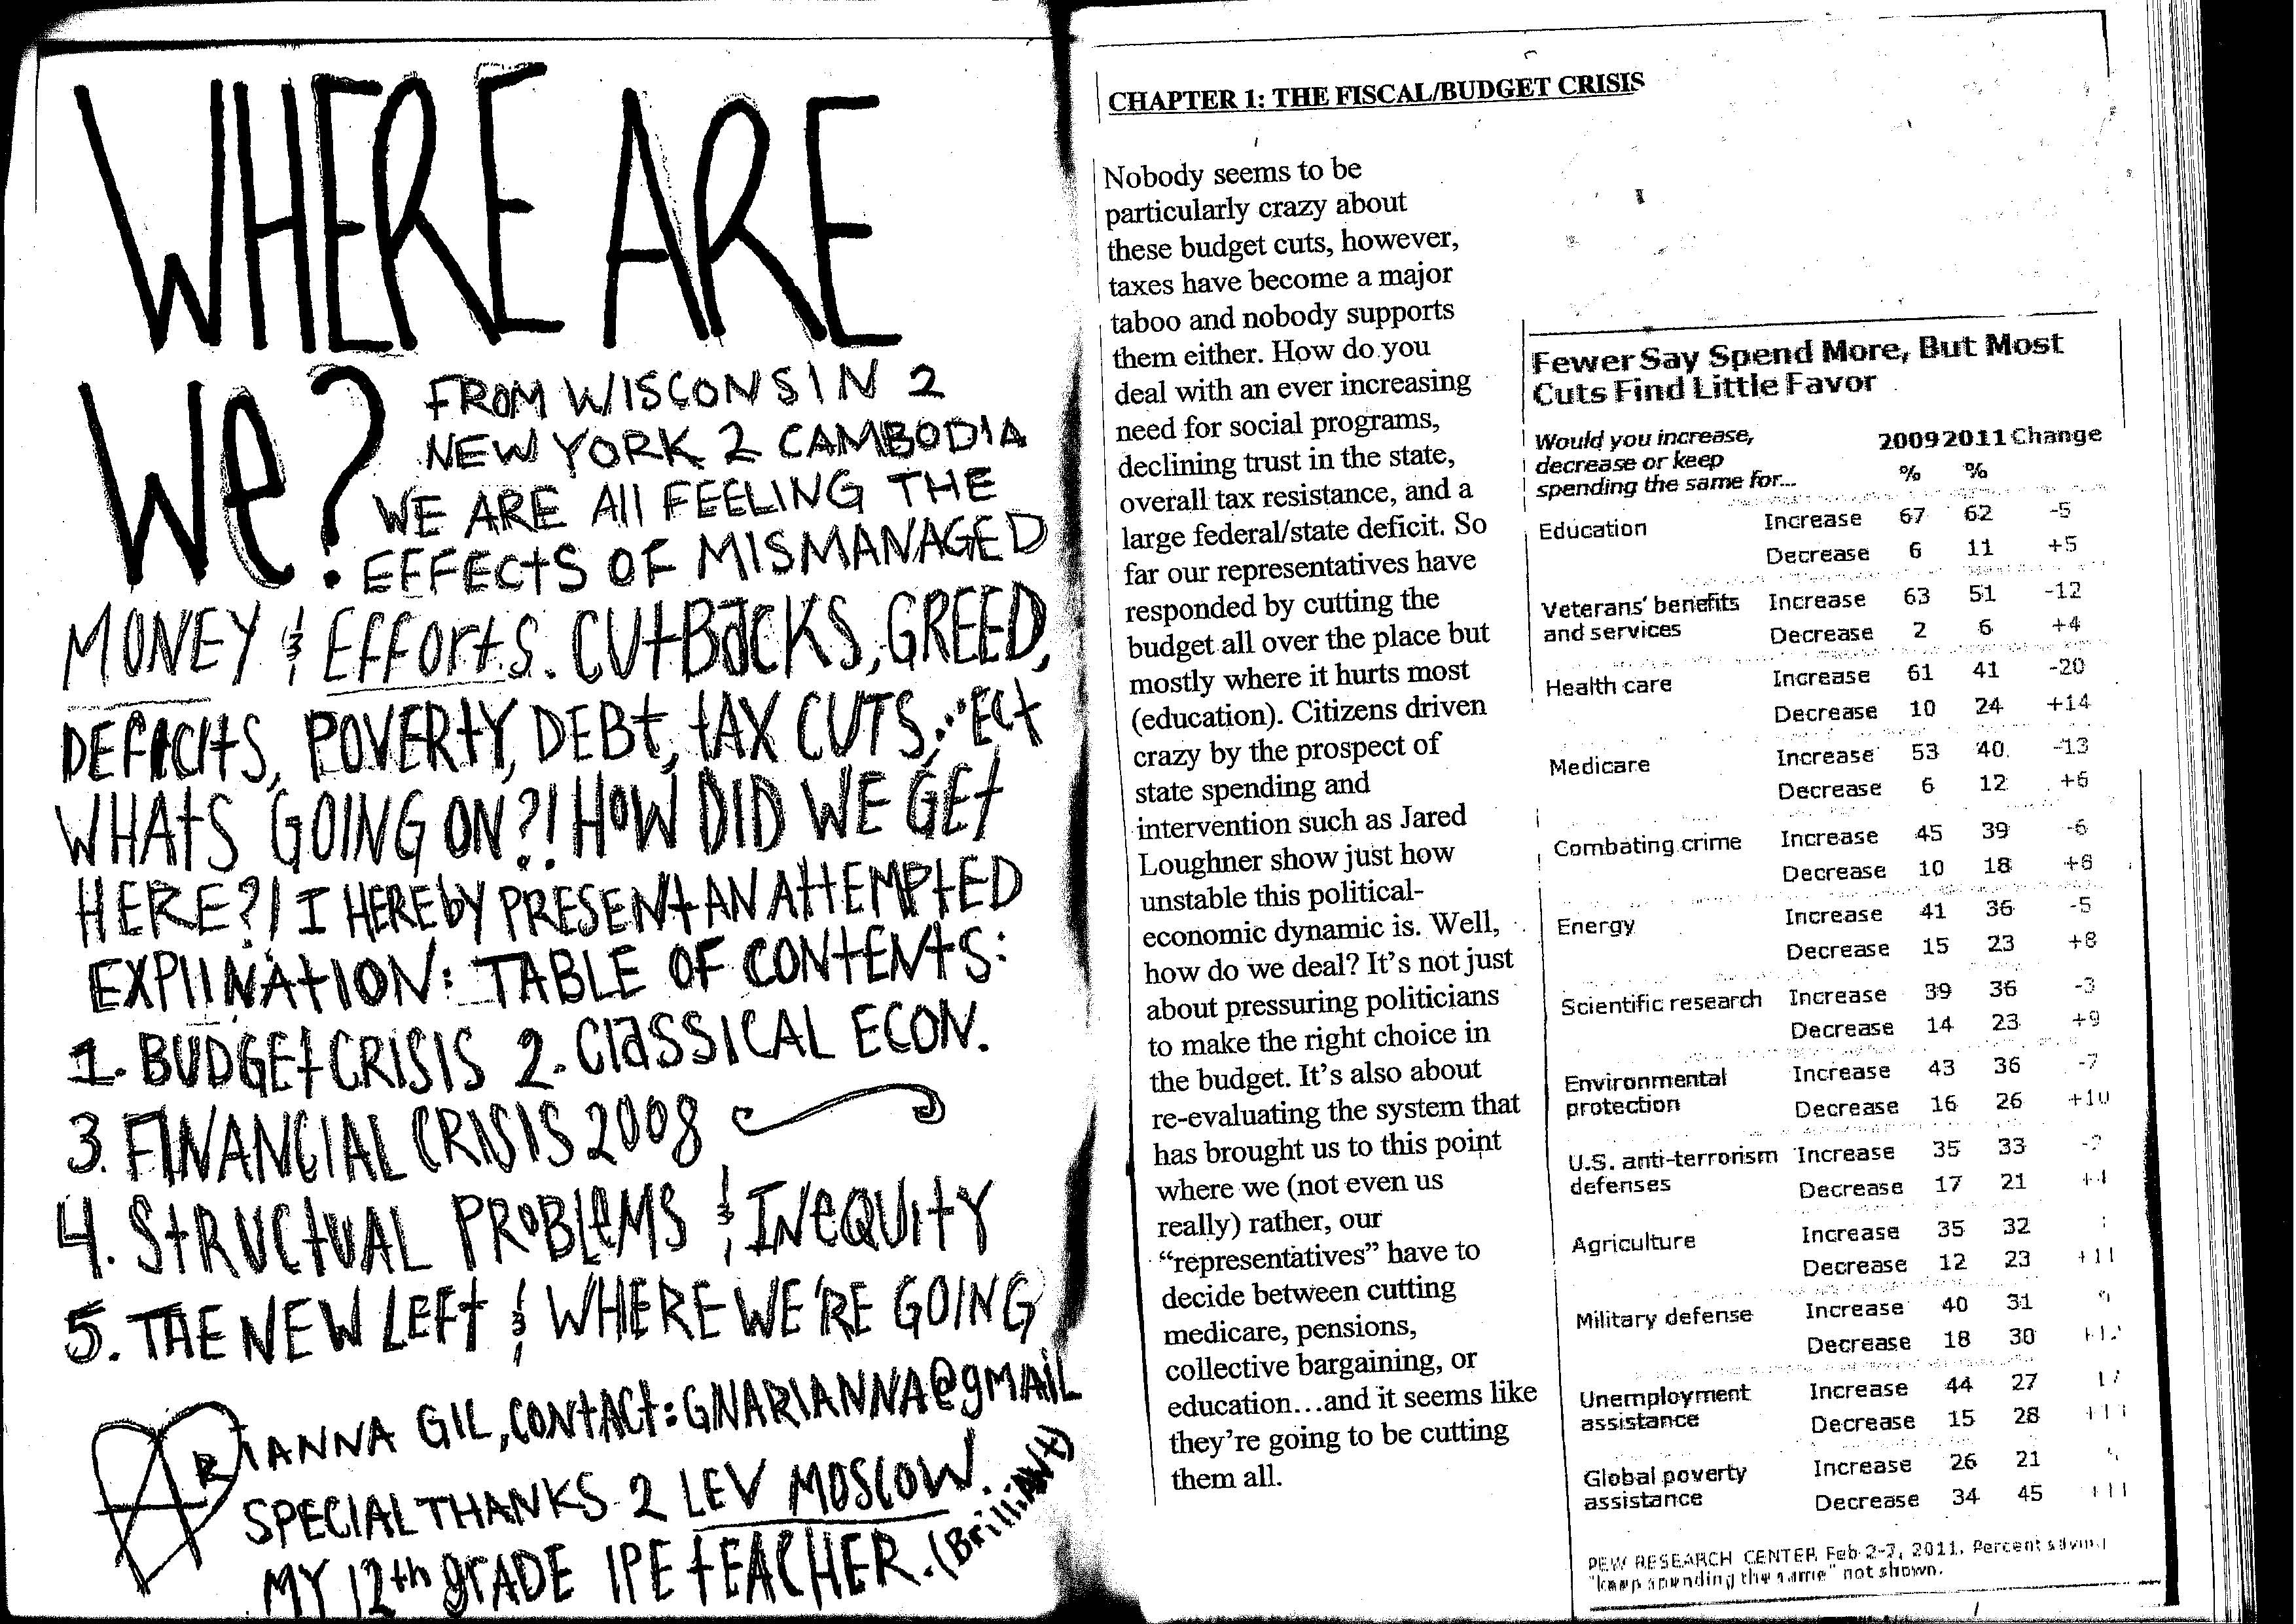 WHERE ARE
WE?
FROM WISCONSIN 2
NEW YORK 2 CAMBODIA
WE ARE All FEELING THE
EFFECtS OF MISMANAGED
MONEY & EFFOrtS. CUtBACKS, GREED,
DEFICItS, POVERtY, DEBt, tAX CUTS, ECt
WHAtS GOING ON?! HOW DID WE GEt
HERE?! I HEREbY PRESENt AN AttEMPtED
EXPlINAtION: TABLE OF CONtENtS:
1. BUDGEt CRISIS 2. ClASSICAL ECON.
3. FINANCIAL CRISIS 2008
4. StRUCtUAL PROBLeMS & INeQUItY
5. THE NEW LEFt & WHERE WE'RE GOING
ARIANNA GIL, CONtACt: GNARIANNA@gMAIL
SPECIAL THANKS 2 LEV MOSCOW.
MY 12th grADE IPE tEACHER. (BrilliANt)
CHAPTER 1: THE FISCAL/BUDGET CRISIS
Nobody seems to be
particularly crazy about
these budget cuts, however,
taxes have become a major
taboo and nobody supports
them either. How do you
deal with an ever increasing
need for social programs,
declining trust in the state,
overall tax resistance, and a
large federal/state deficit. So
far our representatives have
responded by cutting the
budget all over the place but
mostly where it hurts most
(education). Citizens driven
crazy by the prospect of
state spending and
intervention such as Jared
Loughner show just how
unstable this political-
economic dynamic is. Well,
how do we deal? It's not just
about pressuring politicians
to make the right choice in
the budget. It's also about
re-evaluating the system that
has brought us to this point
where we (not even us
really) rather, our
"representatives" have to
decide between cutting
medicare, pensions,
collective bargaining, or
education…and it seems like
they're going to be cutting
them all.
Fewer Say Spend More, But Most
Cuts Find Little Favor
Would you increase,
decrease or keep
spending the same for...
2009 2011 Change
% %
Education Increase 67 62 -5
Decrease 6 11 +5
Veterans' benefits
and services
Increase 63 51 -12
Decrease 2 6 +4
Health care Increase 61 41 -20
Decrease 10 24 +14
Medicare Increase 53 40 -13
Decrease 6 12 +6
Combating crime Increase 45 39 -6
Decrease 10 18 +8
Energy Increase 41 36 -5
Decrease 15 23 +8
Scientific research Increase 39 36 -3
Decrease 14 23 +9
Environmental
protection
Increase 43 36 -7
Decrease 16 26 +10
U.S. anti-terrorism
defenses
Increase 35 33
Decrease 17 21 +4
Agriculture Increase 35 32
Decrease 12 23 +11
Military defense Increase 40 31
Decrease 18 30
Unemployment
assistance
Increase 44 27
Decrease 15 28
Global poverty
assistance
Increase 26 21
Decrease 34 45
PEW RESEARCH CENTER Feb 2-7, 2011. Percent saying
"keep spending the same" not shown.